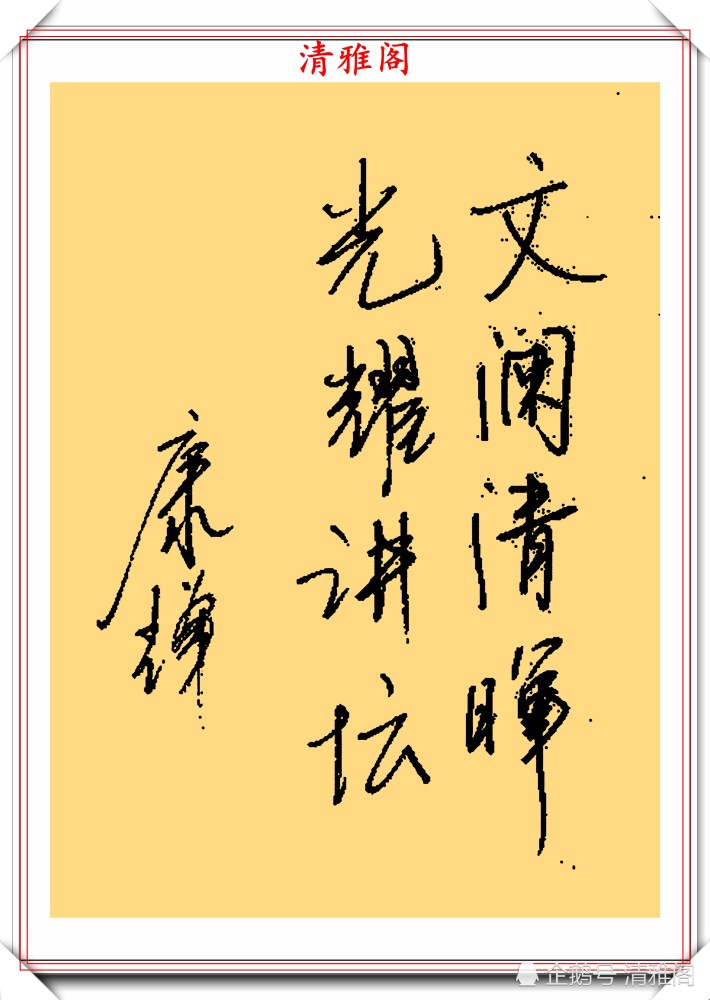 清雅阁
文澜清晖
光耀讲坛
康辉
企鹅号 清雅阁